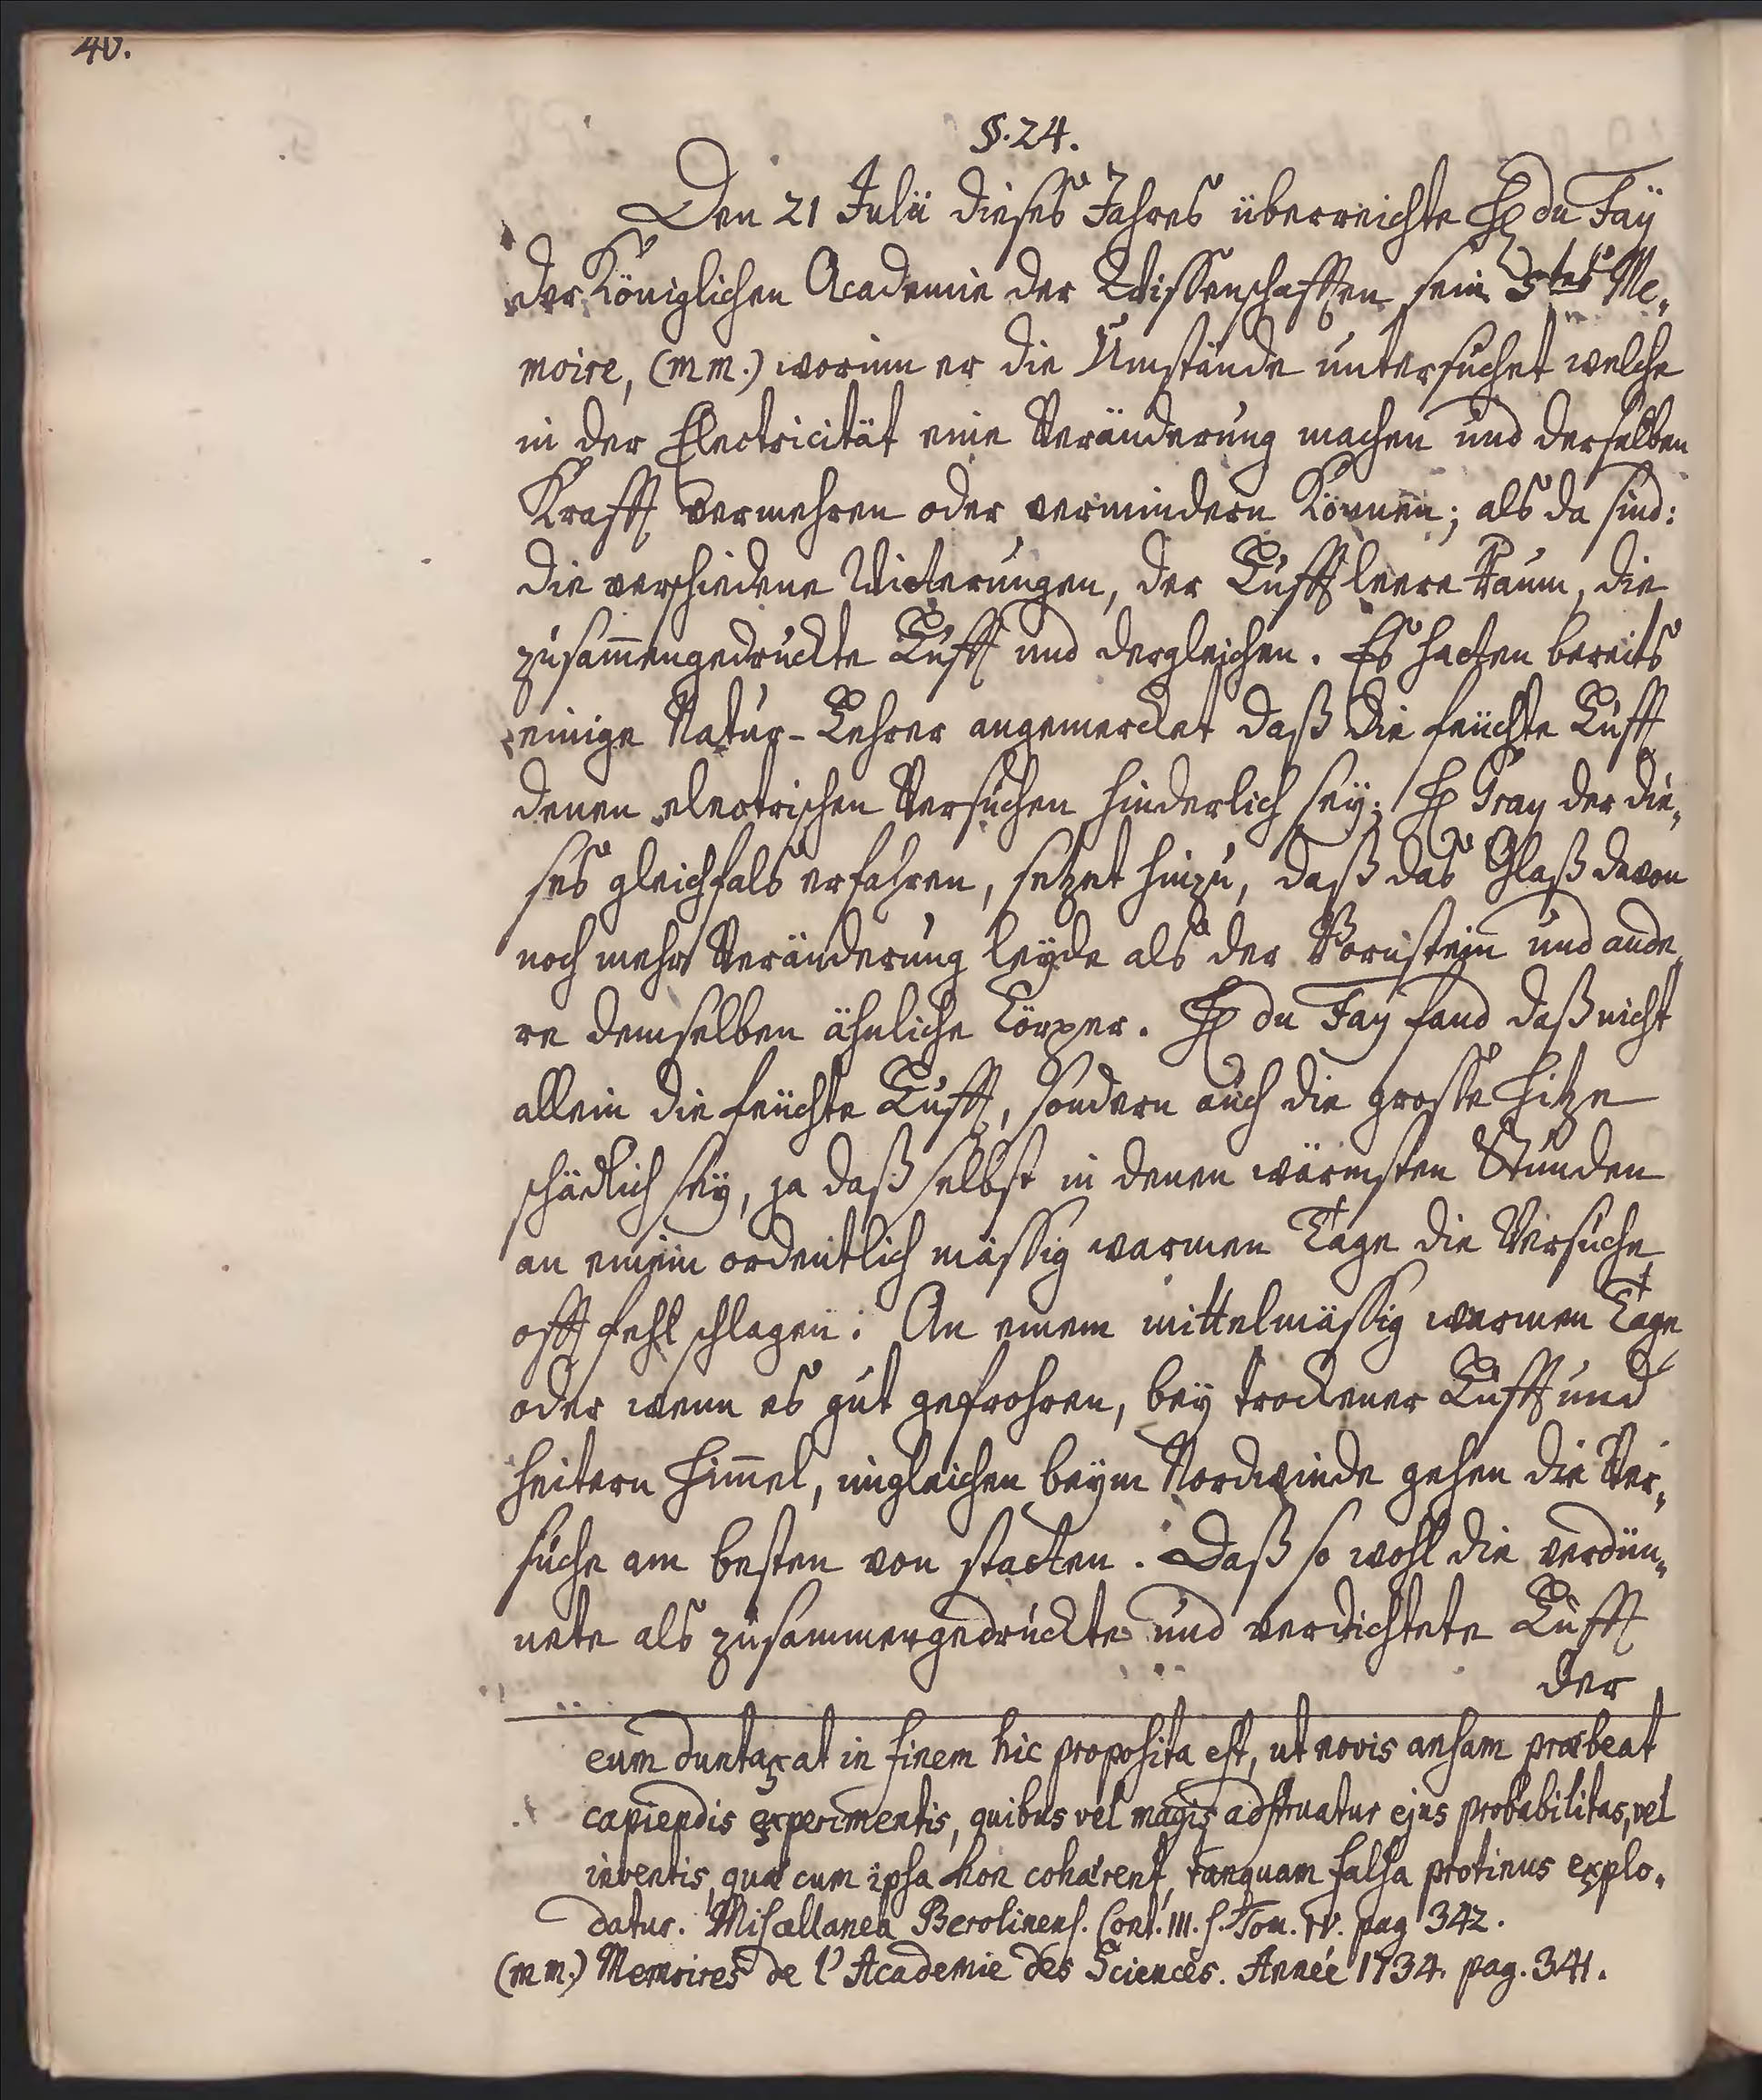 40.
§. 24.
Den 21 Julii dieses Jahres überreichte H du Faÿ
der Königlichen Academie der Wissenschafften sein 5tes Me„
moire, (mm.) worinn er die Umstände untersuchet welche
in der Electricität eine Veränderung machen und derselben
Krafft vermehren oder vermindern können; als da sind:
die verschiedene Witterungen, der Lufft leere Raum, die
zusam̄engedruckte Lufft und dergleichen. Es hatten bereits
einige Natur-Lehrer angemercket daß die feuchte Lufft
denen electrischen Versuchen hinderlich seÿ; H Gray der die„
ses gleichfals erfahren, setzet hinzu, daß das Glaß davon
noch mehr Veränderung leÿde als der Bornstein und ande„
re demselben ähnliche Cörper. H du Faÿ fand daß nicht
allein die feuchte Lufft, sondern auch die grosse Hitze
schädlich seÿ, ja daß selbst in denen wärmsten Stunden
an einem ordentlich mässig warmen Tage die Versuche
offt fehl schlagen: An einem mittelmässig warmen Tage
oder wenn es gut gefrohren, beÿ trockener Lufft und
heitern Him̄el, ingleichen beÿm Nordwinde gehen die Ver„
suche am besten von statten. Daß so wohl die verdün„
nete als zusammengedruckte und verdichtete Lufft
der
eum duntaxat in finem hic proposita est, ut novis ansam præbeat
capiendis experimentis, quibus vel magis adstruatur ejus probabilitas, vel
inventis, quæ cum ipsa non cohærent, tanquam falsa protinus explo„
datur. Miscellanea Berolinens. Cont. III. s. Tom. IV. pag 342.
(mm.) Memoires de l'Academie des Sciences. Année 1734. pag. 341.